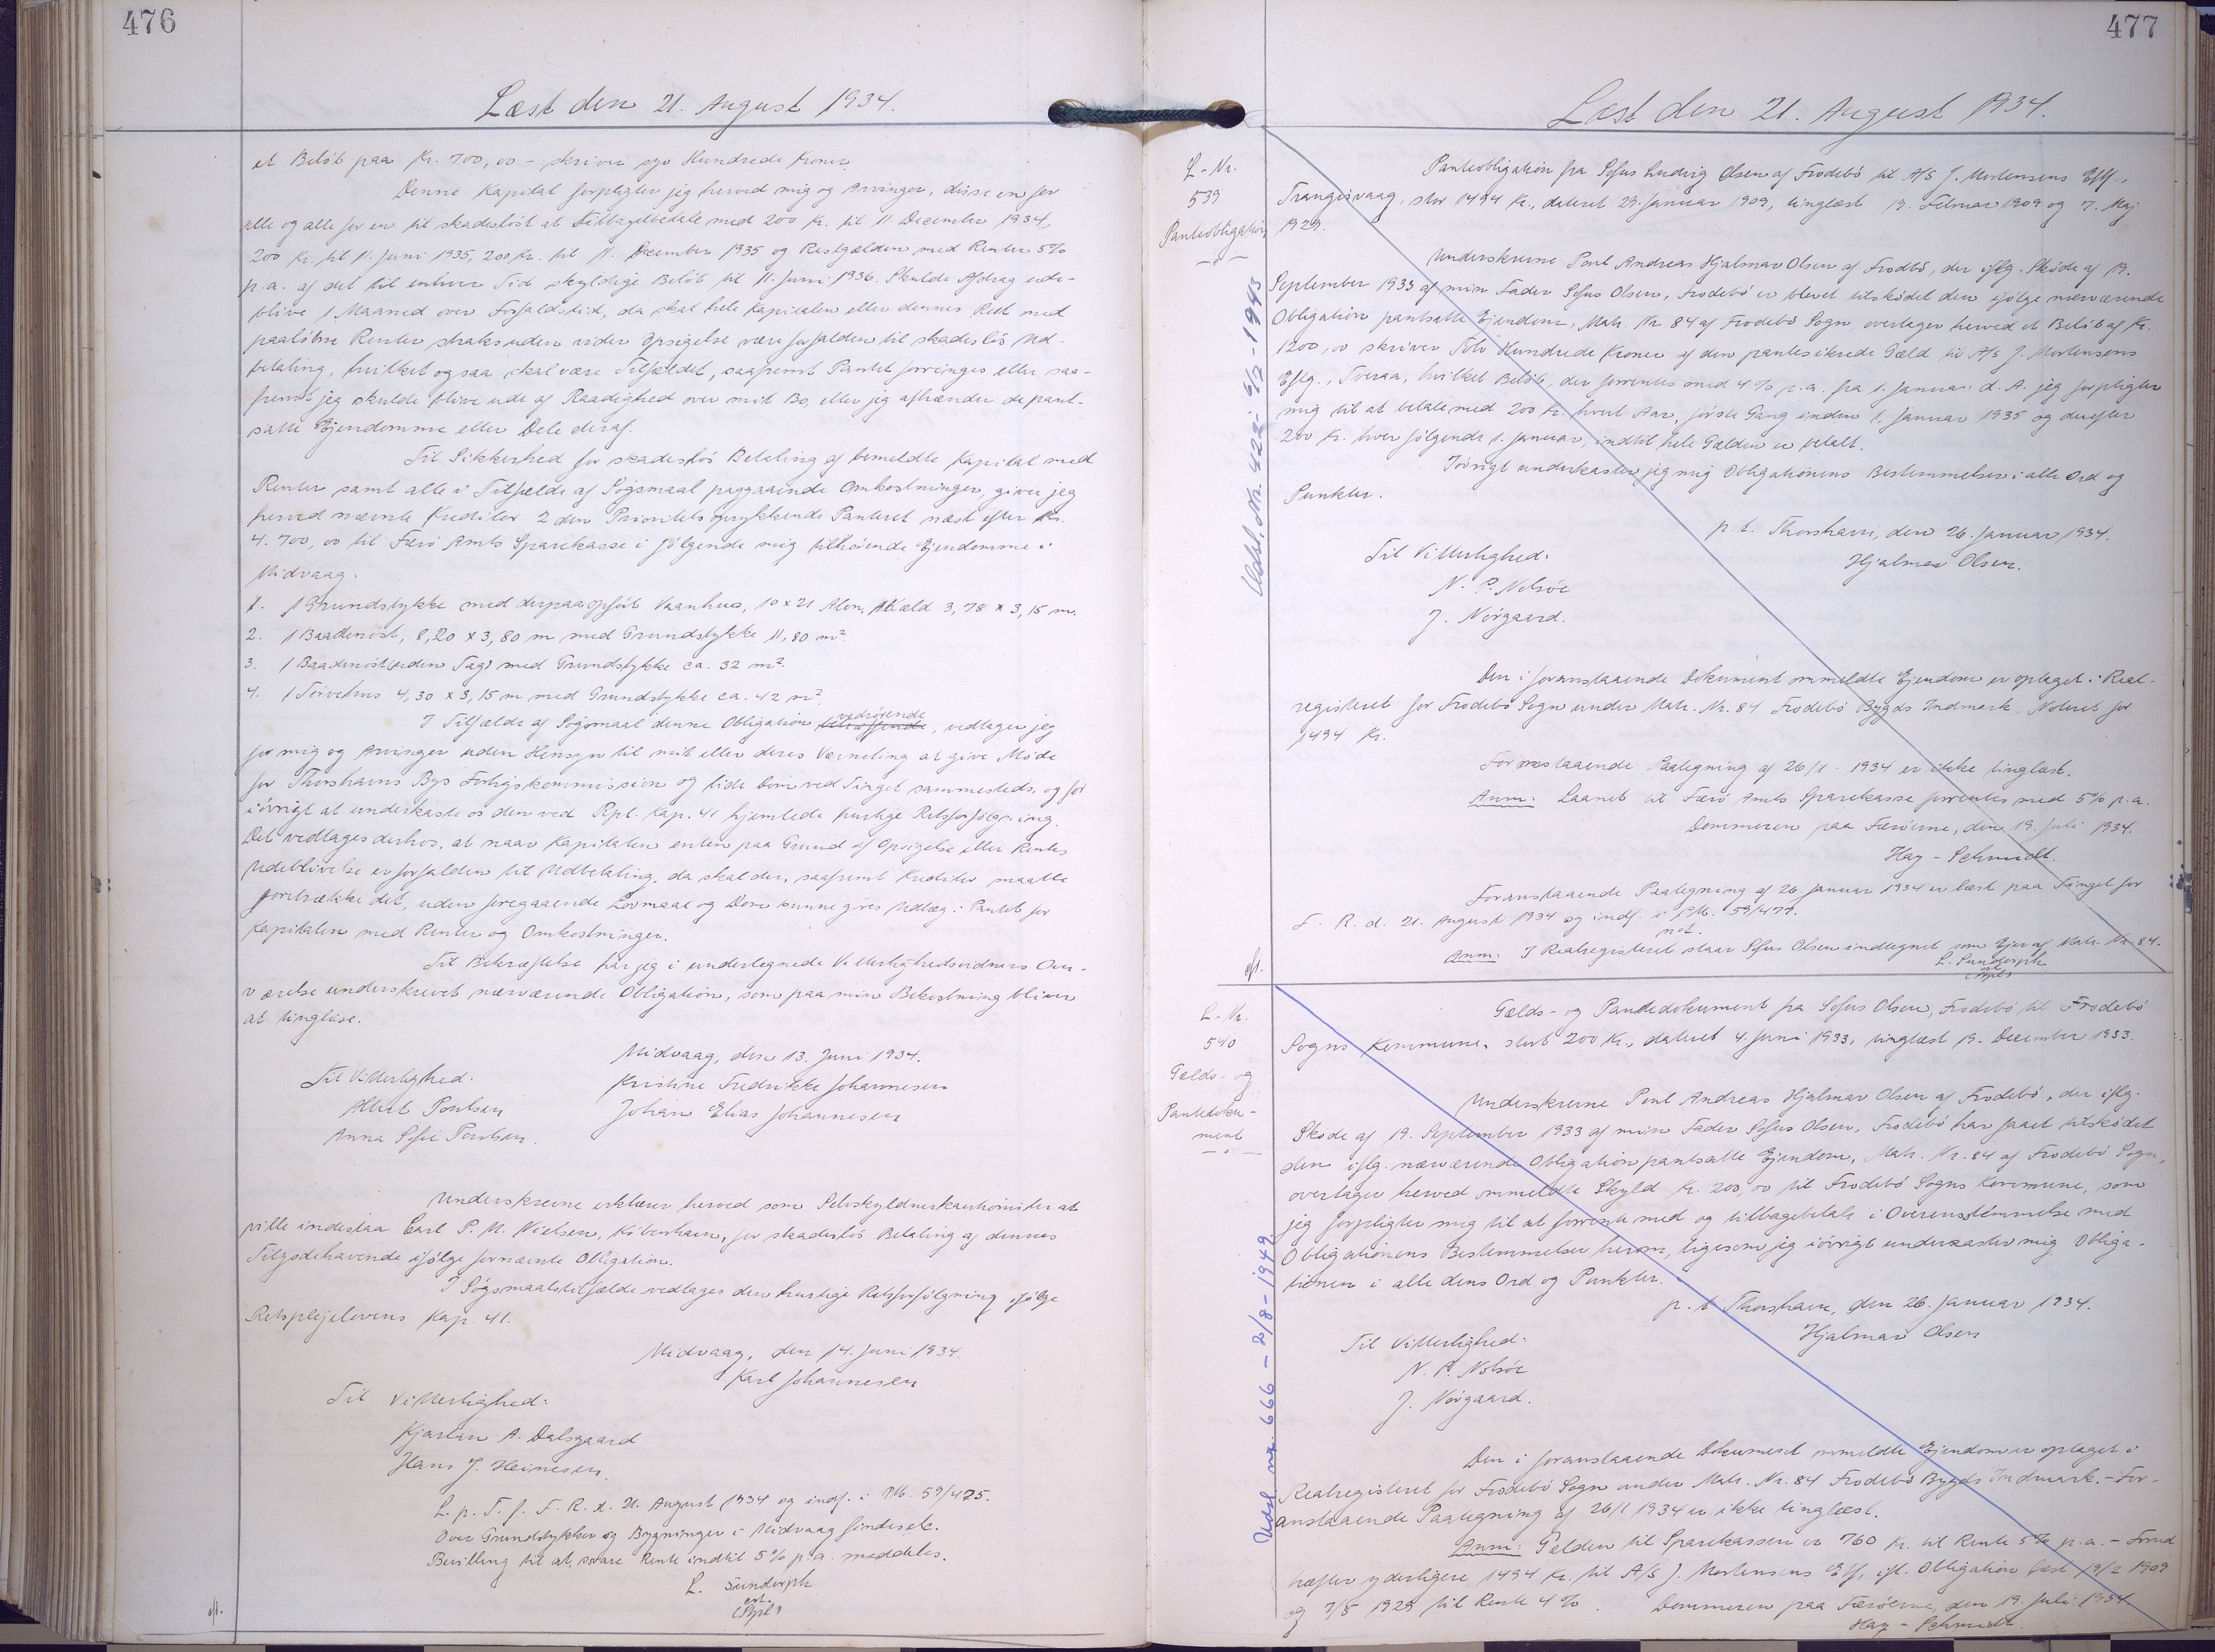 476
Læst den 21. August 1934.
et Beløb paa Kr. 700,00 - skriver syv Hundrede Kroner.
Denne Kapital forpligter jeg herved mig og Arvinger, disse en for
alle og alle for en til skadesløst at tilbagebetale med 200 Kr. til 11 December 1934,
200 Kr. til 11. Juni 1935, 200 Kr. til 11. December 1935 og Restgælden med Renter 5%
p.a. af det til enhver Tid skyldige Beløb til 11. Juni 1936. Skulde Afdrag ude-
blive 1 Maaned over Forfaldstid, da skal hele Kapitalen eller dennes Rest med
paaløbne Renter straks uden videre Opsigelse være forfalden til skadesløs Ud-
betaling, hvilket ogsaa skal være Tilfældet, saafremt Pantet forringes eller saa-
fremt jeg skulde blive ude af Raadighed over mit Bo, eller jeg afhænder de pant-
satte Ejendomme eller Dele deraf.
Til Sikkerhed for skadesløs Betaling af bemeldte Kapital med
Renter samt alle i Tilfælde af Søgsmaal paagaaende Omkostninger, giver jeg
herved nævnte Kreditor 2 den Prioritets oprykkende Panteret næst efter Kr.
4.700,00 til Færø Amts Sparekasse i følgende mig tilhørende Ejendomme i
Midvaag:
1. 1 Grundstykke med derpaa opført Vaanhus, 10 x 21 Alen, 3,78 x 3,15 m.
2. 1 Baadenøst, 8,20 x 3,80 m med Grundstykke 11,80 m².
3. 1 Baadenøst (uden Tag) med Grundstykke ca. 32 m².
4. 1 Tørvehus 4,30 x 3,15 m med Grundstykke ca. 42 m².
I Tilfælde af Søgsmaal denne Obligation betræffende vedrørende, vedtager jeg
for mig og Arvinger uden Hensyn til mit eller deres Værneting at give Møde
for Thorshavns Bys Forligskommission og lide Dom ved Tinget sammesteds, og for
iøvrigt at underkaste os den ved Rpl. Kap. 41 hjemlede hurtige Retsforfølgning.
Det vedtages derhos, at naar Kapitalen enten paa Grund af Opsigelse eller Rentes
Udeblivelse er forfalden til Udbetaling, da skal der, saafremt Kreditor maatte
foretrække det, uden foregaaende Lovmaal og Dom kunne gøres Udlæg i Pantet for
Kapitalen med Renter og Omkostninger.
Til Bekræftelse har jeg i undertegnede Vitterlighedsvidners Over-
værelse underskrevet nærværende Obligation, som paa min Bekostning bliver
at tinglæse.
Midvaag, den 13. Juni 1934.
Til Vitterlighed: Kristine Fredrikke Johannesen
Albert Poulsen Johan Elias Johannesen
Anna Sofie Poulsen.
Underskrevne erklærer herved som Selvskyldnerkautionister at
ville indestaa Carl P. M. Nielsen, København, for skadesløs Betaling af dennes
Tilgodehavende ifølge fornævnte Obligation.
I Søgsmaalstilfælde vedtages den hurtige Retsforfølgning ifølge
Retsplejelovens Kap. 41.
Midvaag, den 14. Juni 1934.
Karl Johannesen
Til Vitterlighed:
Kjartan A. Dalsgaard
Hans J. Heinesen.
L. p. T. f. F. R. d. 21. August 1934 og indf. i P.M. 59/475.
Over Grundstykker og Bygninger i Midvaag findes ek.
Bevilling til at svare Rente indtil 5% p.a. meddeles.
L. Sundorph
cst.
477
Læst den 21. August 1934.
L-Nr.
539
Panteobligation
Udsl. nr. 422-6/7-1943
Panteobligation fra Sofus Ludvig Olsen af Frodebø til A/S J. Mortensens Eftf.,
Trangisvaag, stor 1494 Kr., dateret 29. Januar 1909, tinglæst 19. Februar 1909 og 7. Maj
1929.
Underskrevne Poul Andreas Hjalmar Olsen af Frodbø, der iflg. Skøde af 19.
September 1933 af min Fader Sofus Olsen, Frodebø er blevet tilskødet den ifølge nærværende
Obligation pantsatte Ejendom, Matr. Nr. 84 af Frodebø Sogn, overtager herved et Beløb af Kr.
1200,00 skriver Tolv Hundrede Kroner af den pantesikrede Gæld til A/S J. Mortensens
Eflg., Tveraa, hvilket Beløb, der forrentes med 4% p.a. fra 1. Januar d. A. jeg forpligter
mig til at betale med 200 Kr. hvert Aar, første Gang inden 1. Januar 1935 og derefter
200 Kr. hver følgende 1. Januar, indtil hele Gælden er betalt.
Iøvrigt underkaster jeg mig Obligationens Bestemmelser i alle Ord og
Punkter.
p. t. Thorshavn, den 26. Januar 1934.
Til Vitterlighed: Hjalmar Olsen.
N. P. Nolsøe
J. Nørgaard.
Den i foranstaaende Dokument ommeldte Ejendom er optaget i Real-
registeret for Frodebø Sogn under Matr. Nr. 84 Frodebø Bygds Indmark. Noteret for
1494 Kr.
Foranstaaende Paategning af 26/1 - 1934 er ikke tinglæst.
Anm: Laanet til Færø Amts Sparekasse forrentes med 5% p.a.
Dommeren paa Færøerne, den 19. Juli 1934.
Hay-Schmidt.
Foranstaaende Paategning af 26. Januar 1934 er læst paa Tinget for
F. R. d. 21. August 1934 og indf. i P.M. 59/477.
not.
Anm: I Realregisteret staar Sofus Olsen indtegnet som Ejer af Matr. Nr. 84.
L. Sundorph
cst.
L-Nr.
540
Gælds- og
Pantedoku-
ment
Udsl. nr. 666 - 2/8 - 1949
Gælds- og Pantedokument fra Sofus Olsen, Frodebø til Frodebø
Sogns Kommune, stort 200 Kr., dateret 4. Juni 1933, tinglæst 19. December 1933.
Underskrevne Poul Andreas Hjalmar Olsen af Frodebø, der iflg.
Skøde af 19. September 1933 af min Fader Sofus Olsen, Frodebø har faaet tilskødet
den iflg. nærværende Obligation pantsatte Ejendom, Matr. Nr. 84 af Frodebø Sogn,
overtager herved ommeldte Skyld Kr. 200,00 til Frodebø Sogns Kommune, som
jeg forpligter mig til at forrente med og tilbagebetale i Overensstemmelse med
Obligationens Bestemmelser herom, ligesom jeg iøvrigt underkaster mig Obliga-
tionen i alle dens Ord og Punkter.
p. t. Thorshavn, den 26. Januar 1934.
Til Vitterlighed: Hjalmar Olsen
N. P. Nolsøe
J. Nørgaard.
Den i foranstaaende Dokument ommeldte Ejendom er optaget i
Realregisteret for Frodebø Sogn under Matr. Nr. 84 Frodebø Bygds Indmark. - For-
anstaaende Paategning af 26/1 1934 er ikke tinglæst.
Anm: Gælden til Sparekassen er 760 Kr. til Rente 5% p.a. - Forud
hæfter yderligere 1494 Kr. til A/S J. Mortensens Eff., ifl. Obligation læst 19/2 1909
og 7/5 1929 til Rente 4%. Dommeren paa Færøerne, den 19. Juli 1934.
Hay-Schmidt.